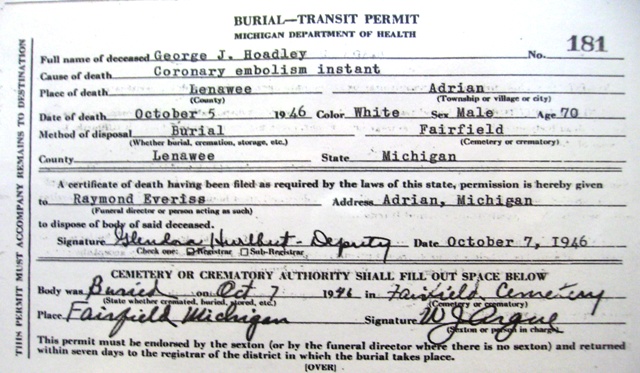 BURIAL—TRANSIT PERMIT
MICHIGAN DEPARTMENT OF HEALTH
181
Full name of deceased George J. Hoadley No.
Cause of death Coronary embolism instant
Place of death Lenawee Adrian
(County) (Township or village or city)
Date of death October 5 1946 Color White Sex Male Age 70
Method of disposal Burial Fairfield
(Whether burial, cremation, storage, etc.) (Cemetery or crematory)
County Lenawee State Michigan
A certificate of death having been filed as required by the laws of this state, permission is hereby given
to Raymond Everiss Address Adrian, Michigan
(Funeral director or person acting as such)
to dispose of body of said deceased.
Signature Glendora Hurlbut - Deputy Date October 7, 1946
Check one: Registrar Sub-Registrar
CEMETERY OR CREMATORY AUTHORITY SHALL FILL OUT SPACE BELOW
Body was Buried on Oct 7 1946 in Fairfield Cemetery
(State whether cremated, buried, stored, etc.) (Cemetery or crematory)
Place Fairfield Michigan Signature W J Argue
(Sexton or person in charge)
This permit must be endorsed by the sexton (or by the funeral director where there is no sexton) and returned
within seven days to the registrar of the district in which the burial takes place.
[OVER]
THIS PERMIT MUST ACCOMPANY REMAINS TO DESTINATION